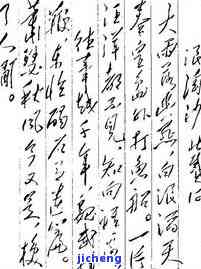 浪淘沙 北戴河
大雨落幽燕 白浪滔天
秦皇島外打魚船。一片
汪洋都不見 知向誰邊
往事越千年 魏武揮
鞭 東臨碣石有遺篇。
蕭瑟秋風今又是 換
了人間。
jicheng